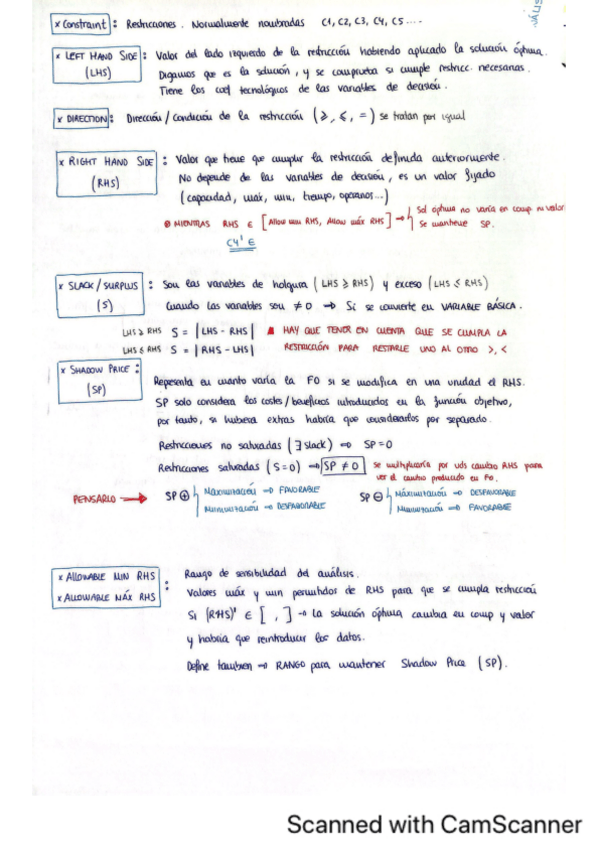 × Constraint : Restricciones. Normalmente nombradas C1, C2, C3, C4, C5 ....
× LEFT HAND SIDE (LHS) : Valor del lado izquierdo de la restricción habiendo aplicado la solución óptima.
Digamos que es la solución, y se comprueba si cumple restricc. necesarias.
Tiene los coef tecnológicos de las variables de decisión.
× DIRECTION : Dirección / Condición de la restricción (≥, ≤, =) se tratan por igual
× RIGHT HAND SIDE (RHS) : Valor que tiene que cumplir la restricción definida anteriormente.
No depende de las variables de decisión, es un valor fijado
(capacidad, max, min, tiempo, operarios...)
MIENTRAS RHS ∈ [Allow min RHS, Allow máx RHS] → Sol óptima no varía en comp. ni valor
Se mantiene SP.
C4' ∈
× SLACK / SURPLUS (S) : Son las variables de holgura (LHS ≥ RHS) y exceso (LHS ≤ RHS)
Cuando las variables son ≠ 0 → Si se convierte en VARIABLE BÁSICA.
LHS ≥ RHS S = |LHS - RHS| HAY QUE TENER EN CUENTA QUE SE CUMPLA LA
LHS ≤ RHS S = |RHS - LHS| RESTRICCIÓN PARA RESTARLE UNO AL OTRO >, <
× SHADOW PRICE : (SP)
Representa en cuanto varía la FO si se modifica en una unidad el RHS.
SP solo considera los costes / beneficios introducidos en la función objetivo,
por tanto, si hubiera extras habría que considerarlos por separado.
Restricciones no saturadas (∃ slack) → SP = 0
Restricciones saturadas (S=0) → SP ≠ 0 se multiplicaría por uds cambio RHS para
ver el cambio producido en FO.
PENSARLO → SP ⊕ Maximización → FAVORABLE SP ⊖ Maximización → DESFAVORABLE
Minimización → DESFAVORABLE Minimización → FAVORABLE
× ALLOWABLE MIN RHS
× ALLOWABLE MÁX RHS : Rango de sensibilidad del análisis.
Valores máx y min permitidos de RHS para que se cumpla restricción
Si (RHS)' ∈ [ , ] → la solución óptima cambia en comp y valor
y habría que reintroducir los datos.
Define tambien → RANGO para mantener Shadow Price (SP).
Scanned with CamScanner